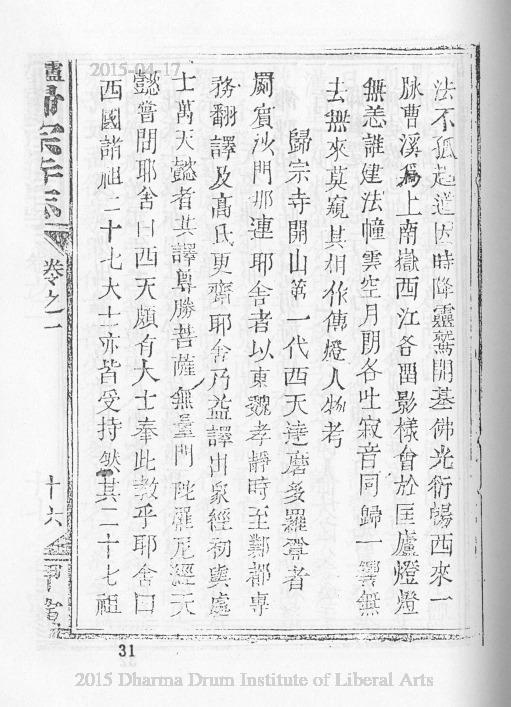 2015-04-17
法不孤起道因時降靈鷲開基佛光衍暢西來一
脉曹溪爲上南嶽西江各畱影樣會於匡廬燈燈
無恙誰建法幢雲空月朗各吐寂音同歸一響無
去無來莫窺其相作傳燈人物考
歸宗寺開山第一代西天達磨多羅尊者
罽賓沙門那連耶舍者以東魏孝靜時至鄴都專
務翻譯及高氏更齊耶舍乃益譯出衆經初與處
士萬天懿者其譯尊勝菩薩無量門陀羅尼經天
懿嘗問耶舍曰西天頗有大士奉此教乎耶舍曰
西國諸祖二十七大士亦皆受持然其二十七祖
卷之二
十六
31
2015 Dharma Drum Institute of Liberal Arts